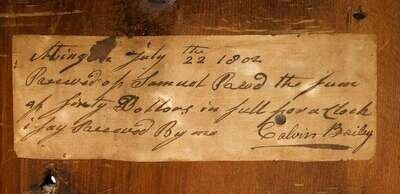 Abington July the 22 1802
Receved of Samuel Reed the sum
of Dollors in full for a Clock
i say Receved By me Calvin Bailey